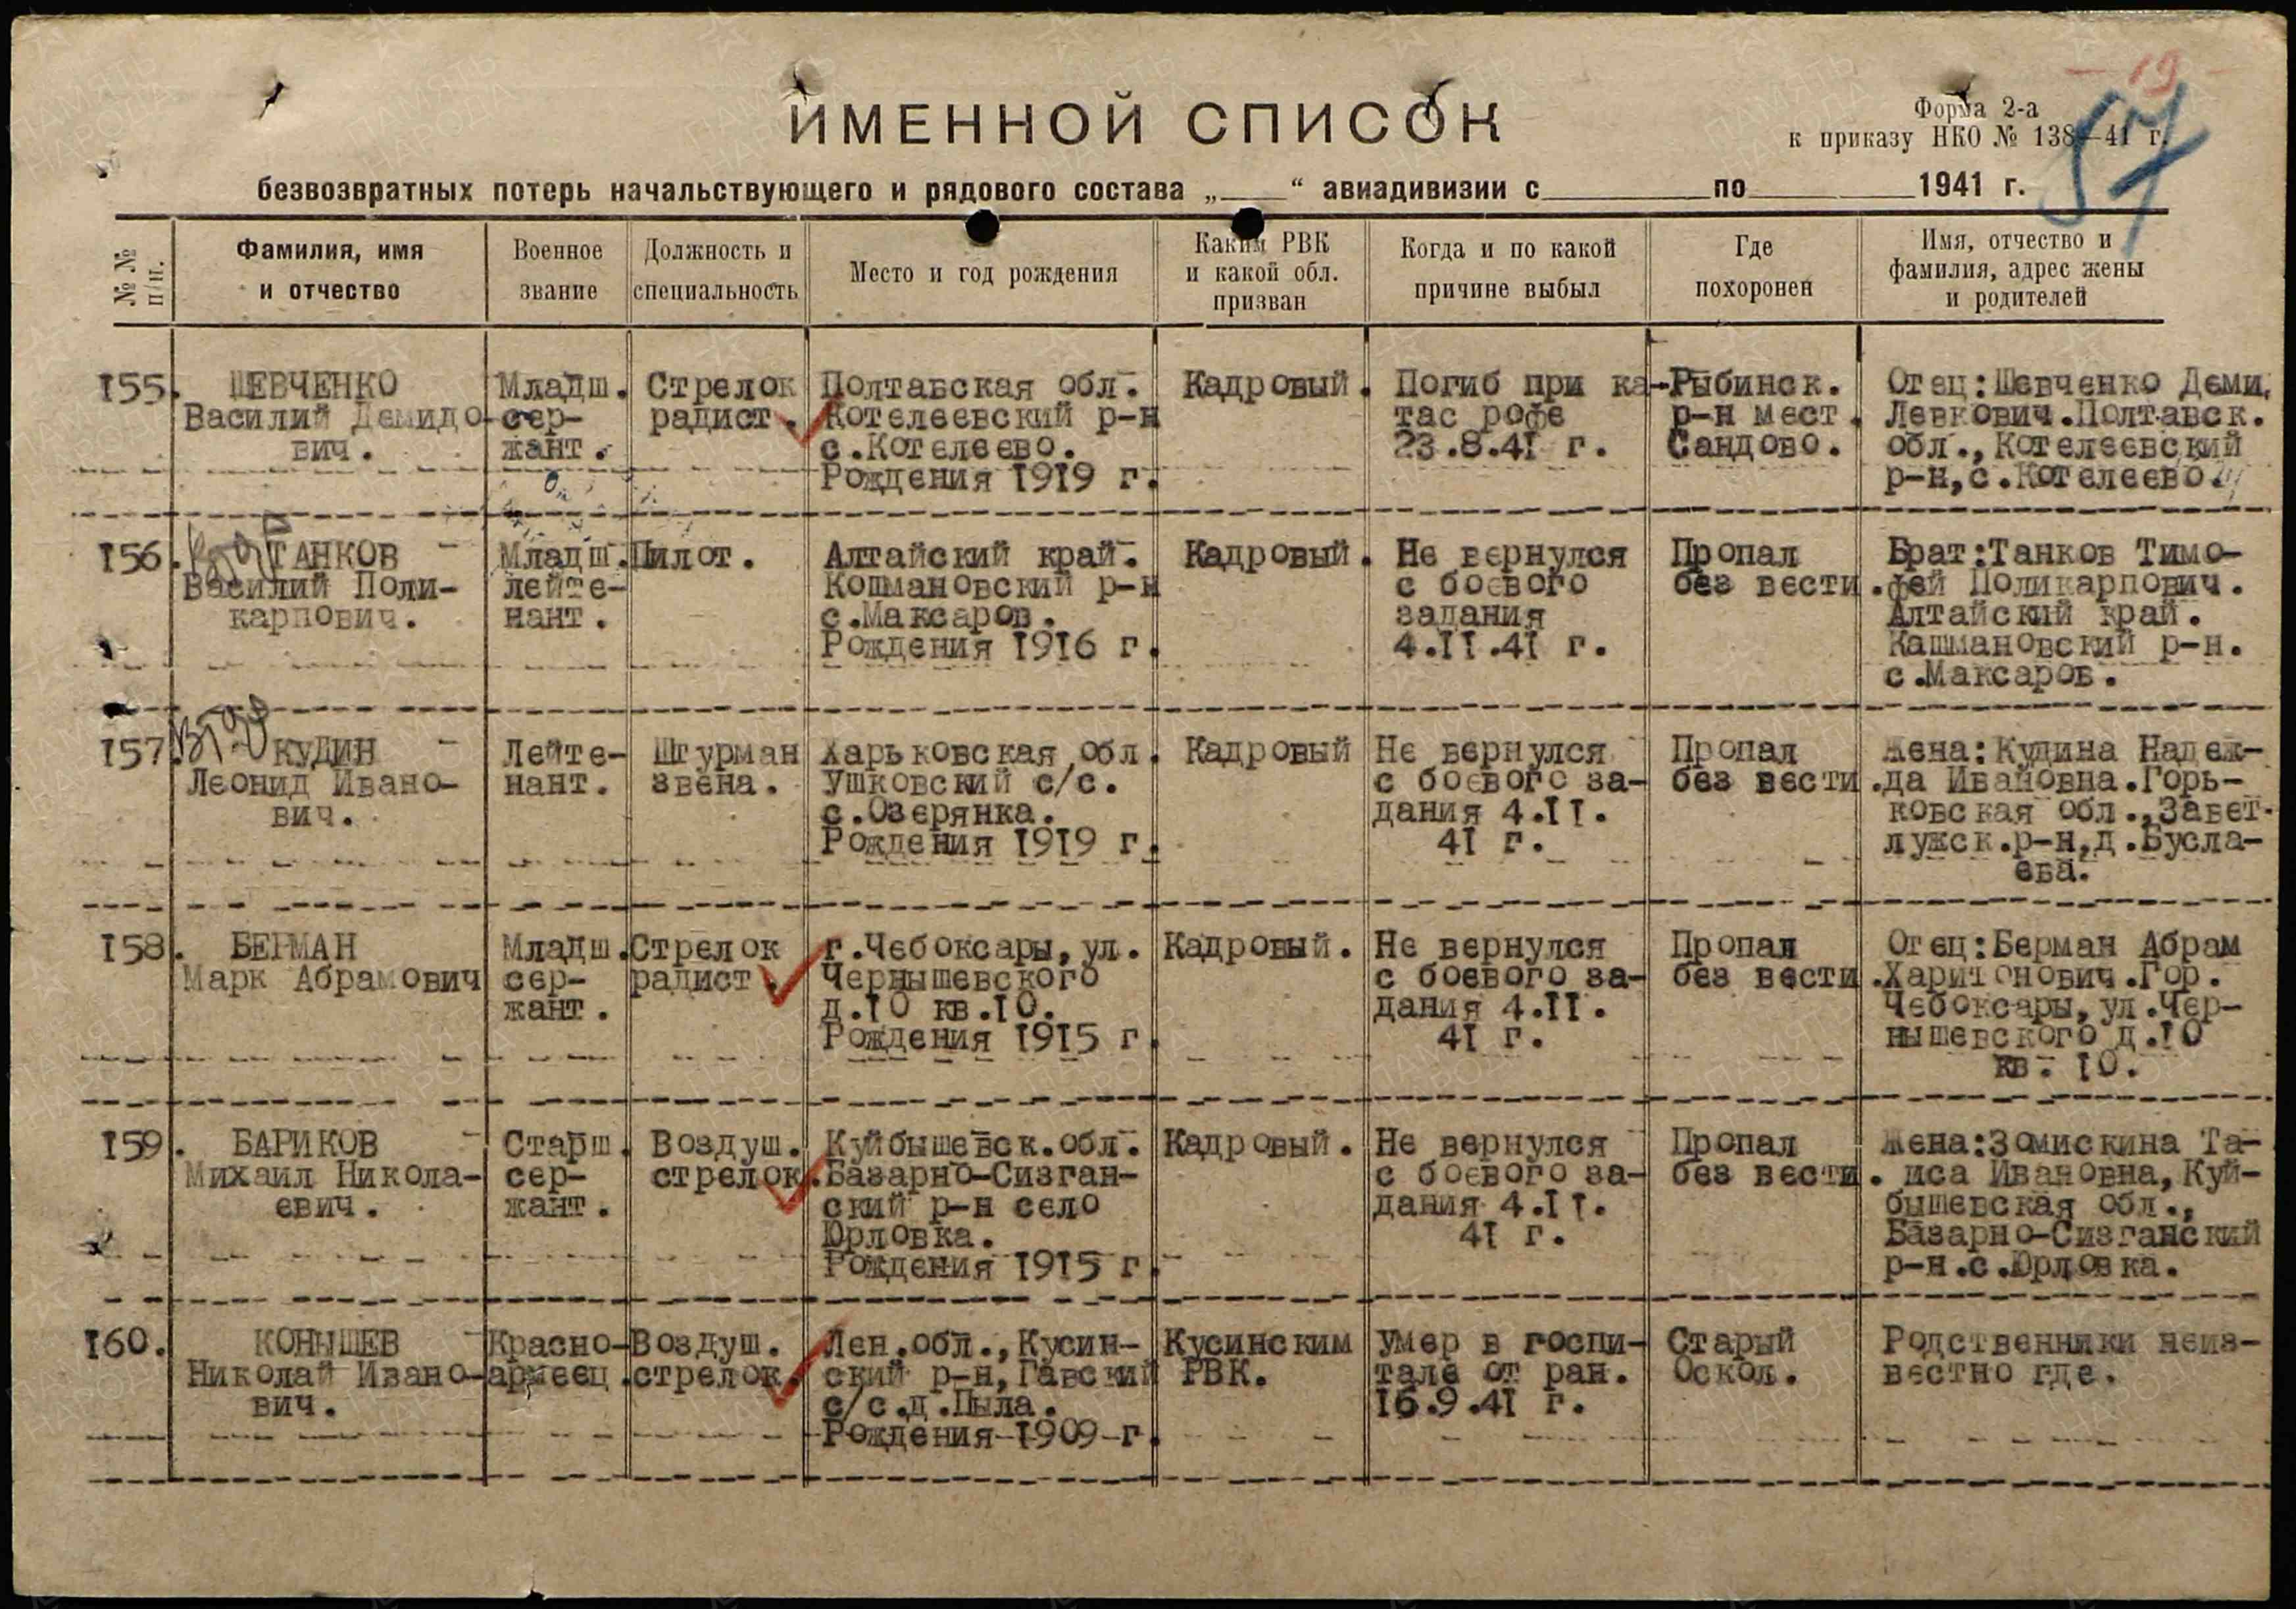 19
57
ИМЕННОЙ СПИСОК
Форма 2-а
к приказу НКО № 138—41 г.
безвозвратных потерь начальствующего и рядового состава „____“ авиадивизии с________по________1941 г.
№ № п/п.
Фамилия, имя
и отчество
Военное
звание
Должность и
специальность
Место и год рождения
Каким РВК
и какой обл.
призван
Когда и по какой
причине выбыл
Где
похоронен
Имя, отчество и
фамилия, адрес жены
и родителей
155.
ШЕВЧЕНКО
Василий Демидо-
вич.
Младш.
сер-
жант.
Стрелок
радист.
Полтавская обл.
Котелеевский р-н
с.Котелеево.
Рождения 1919 г.
Кадровый.
Погиб при ка-
тас рофе
23.8.41 г.
Рыбинск.
р-н мест.
Сандово.
Отец:Шевченко Деми.
Левкович.Полтавск.
обл.,Котелеевский
р-н,с.Котелеево.
156.
ТАНКОВ
Василий Поли-
карпович.
Младш.
лейте-
нант.
Пилот.
Алтайский край.
Кошмановский р-н
с.Максаров.
Рождения 1916 г.
Кадровый.
Не вернулся
с боевого
задания
4.II.41 г.
Пропал
без вести.
Брат:Танков Тимо-
фей Поликарпович.
Алтайский край.
Кашмановский р-н.
с.Максаров.
157.
КУДИН
Леонид Ивано-
вич.
Лейте-
нант.
Штурман
звена.
Харьковская обл.
Ушковский с/с.
с.Озерянка.
Рождения 1919 г.
Кадровый
Не вернулся
с боевого за-
дания 4.II.
41 г.
Пропал
без вести.
Жена:Кудина Надеж-
да Ивановна.Горь-
ковская обл.,Завет-
лужск.р-н,д.Бусла-
ева.
158.
БЕРМАН
Марк Абрамович
Младш.
сер-
жант.
Стрелок
радист.
г.Чебоксары,ул.
Чернышевского
д.10 кв.10.
Рождения 1915 г.
Кадровый.
Не вернулся
с боевого за-
дания 4.II.
41 г.
Пропал
без вести.
Отец:Берман Абрам
Харитонович.Гор.
Чебоксары,ул.Чер-
нышевского д.10
кв. 10.
159.
БАРИКОВ
Михаил Никола-
евич.
Старш.
сер-
жант.
Воздуш.
стрелок.
Куйбышевск.обл.
Базарно-Сизган-
ский р-н село
Юрловка.
Рождения 1915 г.
Кадровый.
Не вернулся
с боевого за-
дания 4.II.
41 г.
Пропал
без вести.
Жена:Зомискина Та-
иса Ивановна,Куй-
бышевская обл.,
Базарно-Сизганский
р-н.с.Юрловка.
160.
КОНЫШЕВ
Николай Ивано-
вич.
Красно-
армеец.
Воздуш.
стрелок.
Лен.обл.,Кусин-
ский р-н,Гавский
с/с.д.Пыла.
Рождения 1909 г.
Кусинским
РВК.
Умер в госпи-
тале от ран.
16.9.41 г.
Старый
Оскол.
Родственники неиз-
вестно где.